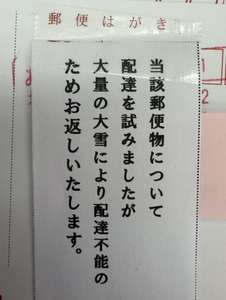 郵便はがき
当該郵便物について
配達を試みましたが
大量の大雪により配達不能の
ためお返しいたします。
1
2